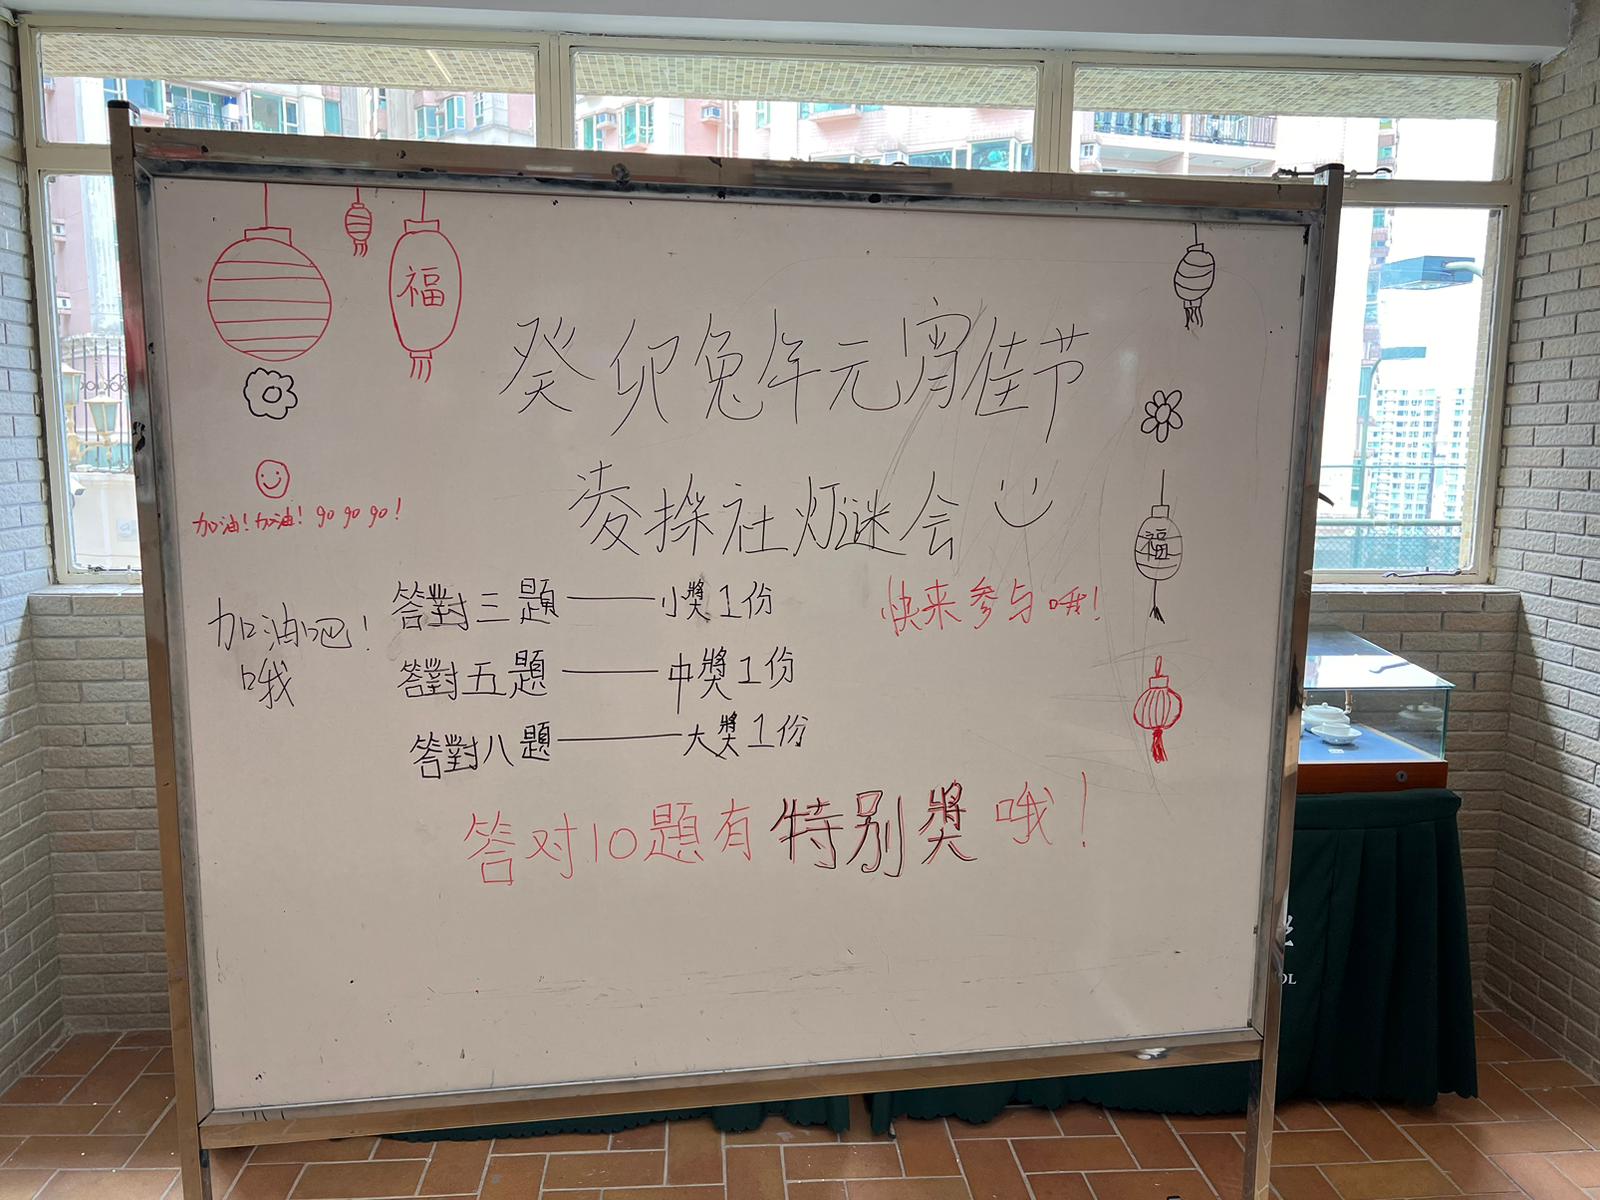 福
癸卯兔年元宵佳节
菱探社灯谜会
福
加油！加油！go go go！
答對三題——小獎1份
快来参与哦！
加油吧！
哦
答對五題——中獎1份
答對八題——大獎1份
答对10題有特别獎哦！
OL